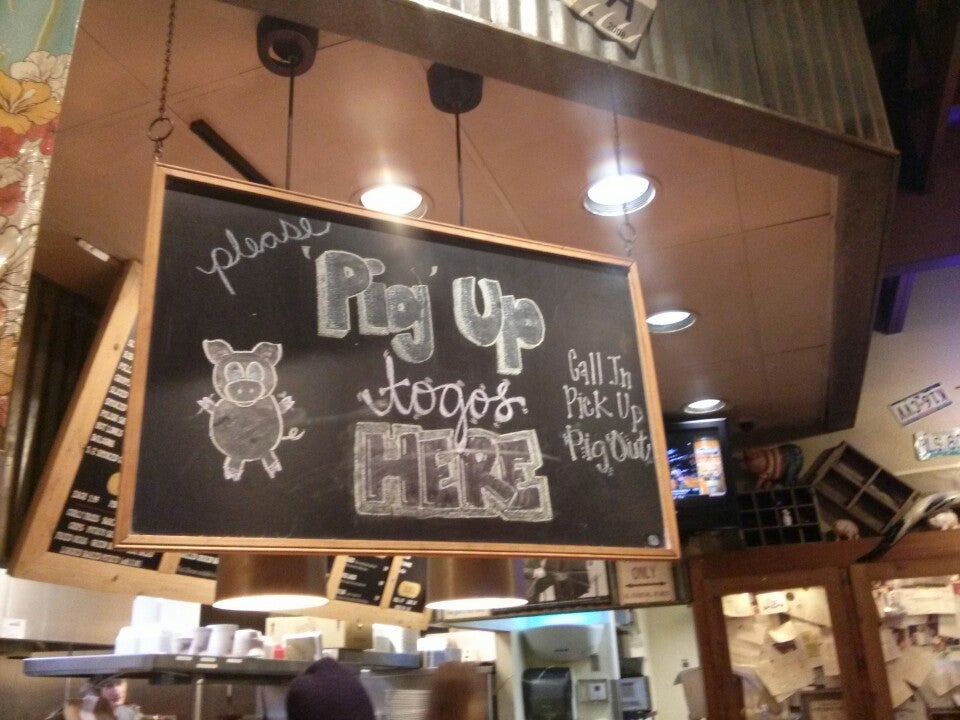 please
'Pig' Up
togos
HERE
Call In
Pick Up
'Pig Out'
ONLY